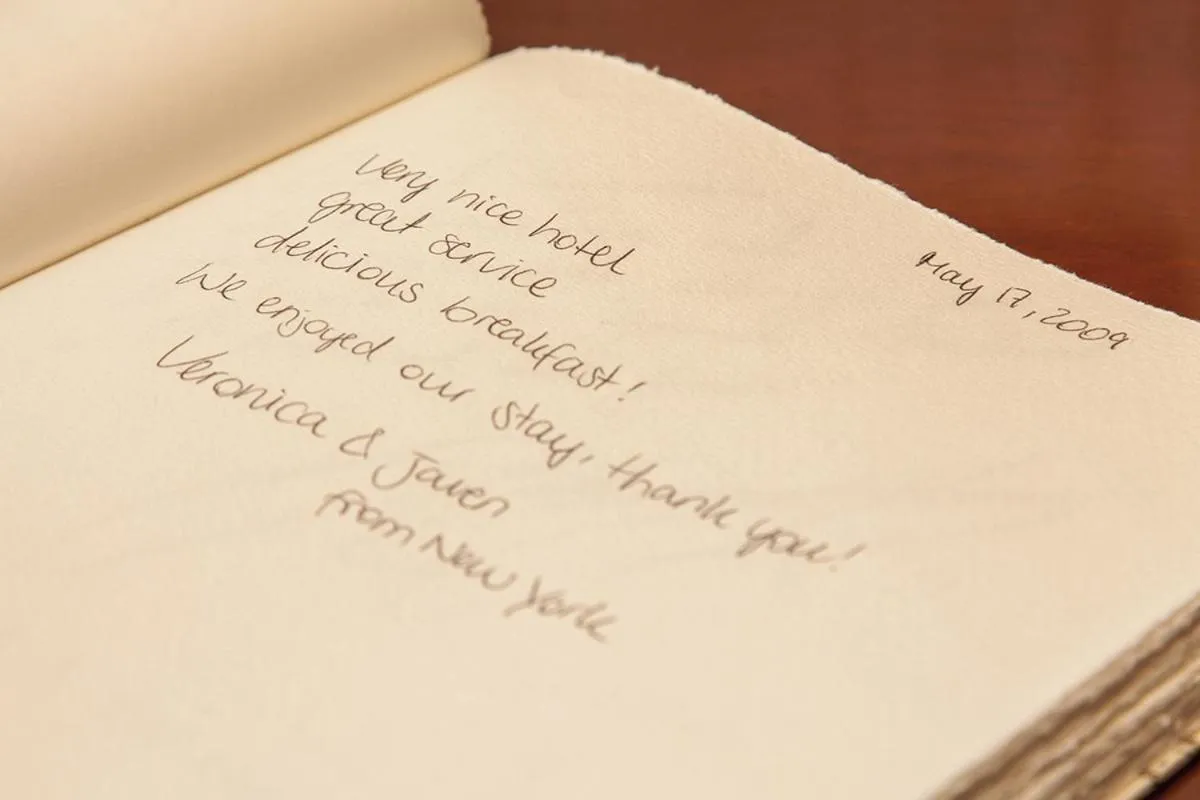 May 17, 2009
very nice hotel
great service
delicious breakfast!
We enjoyed our stay, thank you!
Veronica & Javen
from New York